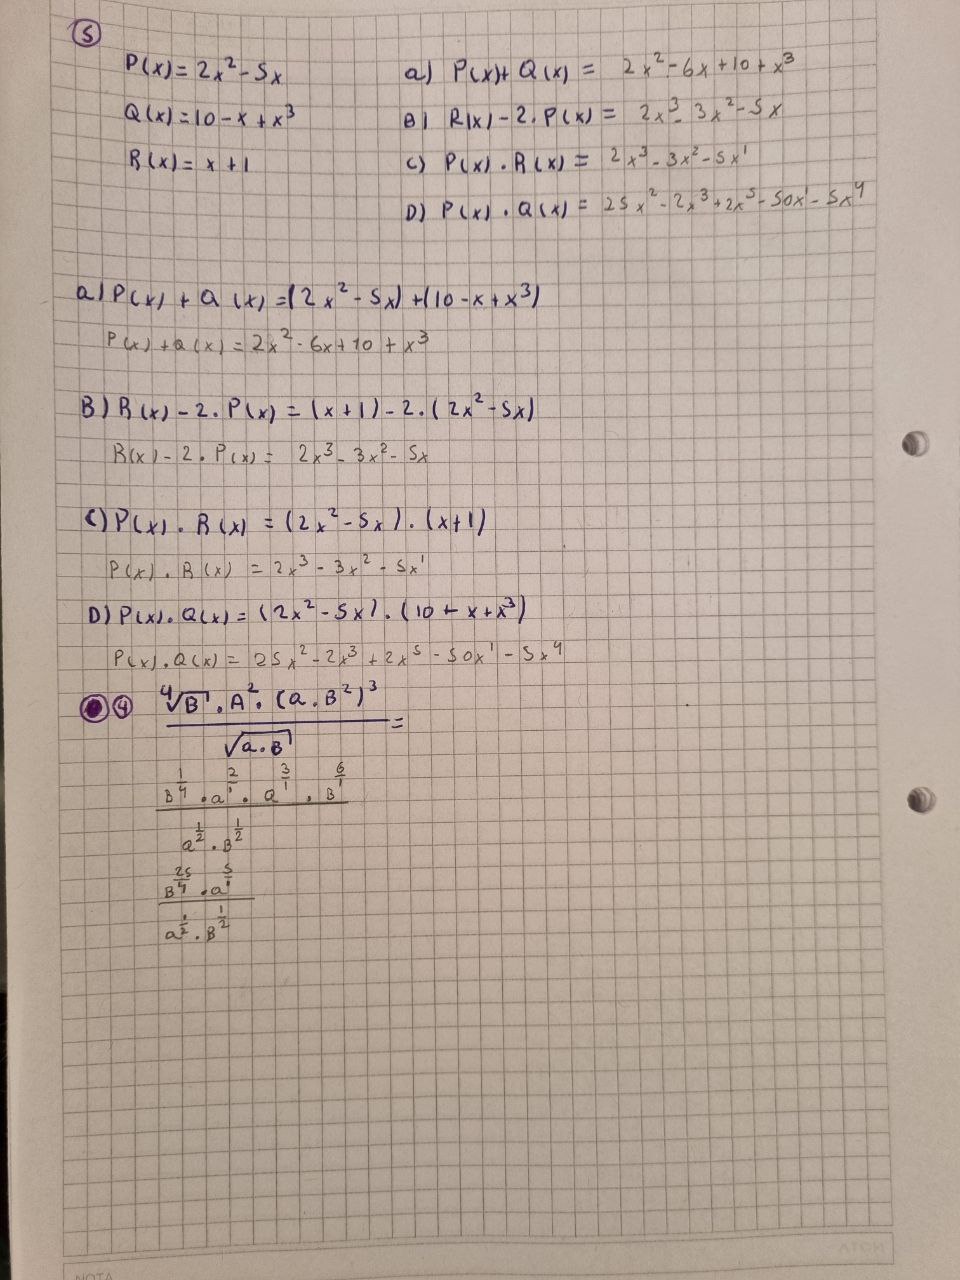 5
P(x) = 2x² - 5x
Q(x) = 10 - x + x³
R(x) = x + 1
a) P(x)+ Q(x) = 2x² - 6x + 10 + x³
B) R(x) - 2. P(x) = 2x³ - 3x² - 5x
C) P(x) . R(x) = 2x³ - 3x² - 5x¹
D) P(x) . Q(x) = 25x² - 2x³ + 2x⁵ - 50x¹ - 5x⁴
a) P(x) + Q(x) = (2x² - 5x) + (10 - x + x³)
P(x) + Q(x) = 2x² - 6x + 10 + x³
B) R(x) - 2. P(x) = (x + 1) - 2. (2x² - 5x)
R(x) - 2. P(x) = 2x³ - 3x² - 5x
C) P(x) . R(x) = (2x² - 5x) . (x + 1)
P(x) . R(x) = 2x³ - 3x² - 5x¹
D) P(x) . Q(x) = (2x² - 5x) . (10 + x + x³)
P(x) . Q(x) = 25x² - 2x³ + 2x⁵ - 50x¹ - 5x⁴
4 ⁴√B . A² . (a . B²)³
√a.B =
B^1/4 . a^2/1 . a^3/1 . B^6/1
a^1/2 . B^1/2
B^25/4 . a^5/1
a^1/2 . B^1/2
NOTA
ATOM